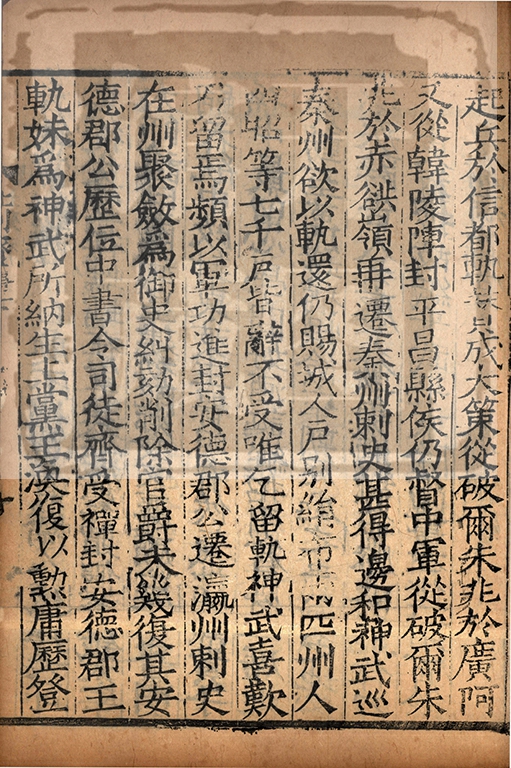 起兵於信都軌贊成大策從破爾朱兆於廣阿
又從韓陵陣封平昌縣侯仍督中軍從破爾朱
兆於赤谼嶺再遷秦州刺史甚得邊和神武巡
秦州欲以軌還仍賜城人戶別絹布兩匹州人
田昭等七千戶皆辭不受唯乞留軌神武喜歎
乃留焉頻以軍功進封安德郡公遷瀛州刺史
在州聚斂爲御史糾劾削除官爵未幾復其安
德郡公歷位中書令司徒齊受禪封安德郡王
軌妹爲神武所納生上黨王渙復以勲庸歷登